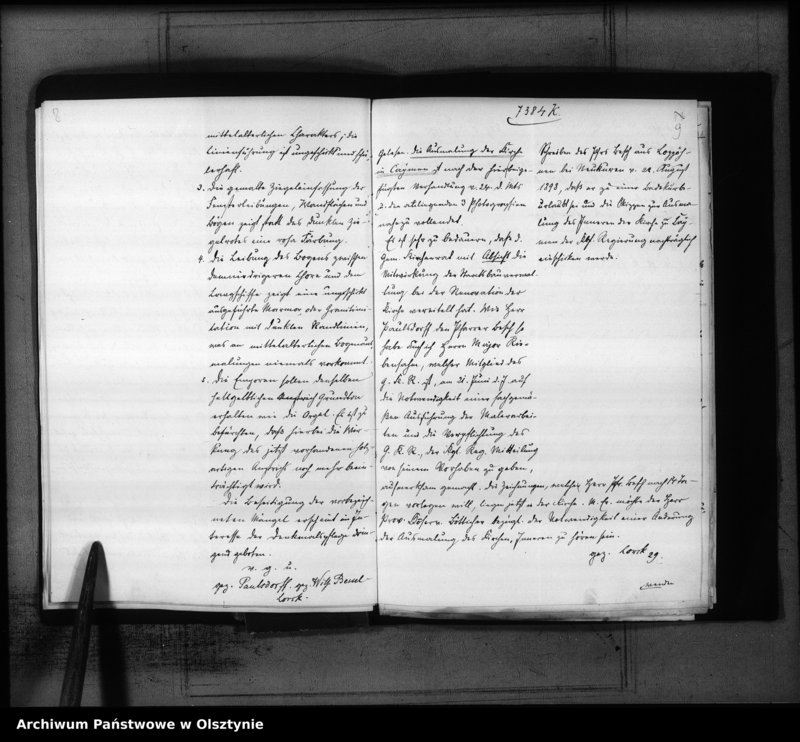 8
mittelalterlichen Charakters; die
Linienführung ist ungeschickt und schü-
lerhaft.
3. Die gemalte Ziegeleinfassung der
Fensterleibungen, Wandflächen und
Bögen zeigt statt des dunklen Zie-
gelrotes eine rosa Färbung.
4. Die Leibung des Bogens zwischen
dem niedrigeren Chore und dem
Langschiffe zeigt eine ungeschickt
ausgeführte Marmor- oder Granitimi-
tation mit dunklen Randlinien,
was an mittelalterlichen Bogenaus-
malungen niemals vorkommt.
5. Die Emporen sollen denselben
hellgelblichen Grundton
erhalten wie die Orgel. Es ist zu
befürchten, daß hierbei die Wir-
kung des jetzt vorhandenen holz-
artigen Anstrichs noch mehr beein-
trächtigt wird.
Die Beseitigung der vorbezeich-
neten Mängel erscheint im In-
teresse der Denkmalspflege drin-
gend geboten.
v. g. u.
gez. Paulsdorff. gez. Wilh. Bessel-
Lorck.
7384 K.
9
Gelesen. Die Ausmalung der Kirche
in Caymen ist nach der hier beige-
fügten Verhandlung v. 24. d. Mts
u. den anliegenden 2 Photographien
nahezu vollendet.
Es ist sehr zu bedauern, daß d.
Gem. Kirchenrat mit Absicht die
Mitwirkung der Staatsbauverwal-
tung bei der Renovation der
Kirche vereitelt hat. Wie Herr
Paulsdorff den Pfarrer Besch so
habe auch ich Herrn Major Rie-
bensahm, welcher Mitglied des
G. K. R. ist, am 21. Juni d. J. auf
die Notwendigkeit einer sachgemä-
ßen Ausführung der Malerarbei-
ten und die Verpflichtung des
G. K. R., der Kgl. Reg. Mitteilung
von seinem Vorhaben zu geben,
aufmerksam gemacht. Die Zeichnungen, welche Herr Pfr. Besch nach 14 Ta-
gen vorlegen will, liegen jetzt in der Kirche. M. E. möchte der Herr
Prov. Konserv. Bötticher bezügl. der Notwendigkeit einer Aenderung
der Ausmalung des Kirchen-Innern zu hören sein.
gez. Lorck 29.
Schreiben des Pfrs Besch aus Loppöh-
nen bei Neukuhren v. 22. August
1898, daß er zu einer Badekur be-
urlaubt sei und die Skizzen zur Ausma-
lung des Inneren der Kirche zu Cay-
men der Kgl. Regierung nachträglich
einschicken werde.
wende
Archiwum Państwowe w Olsztynie